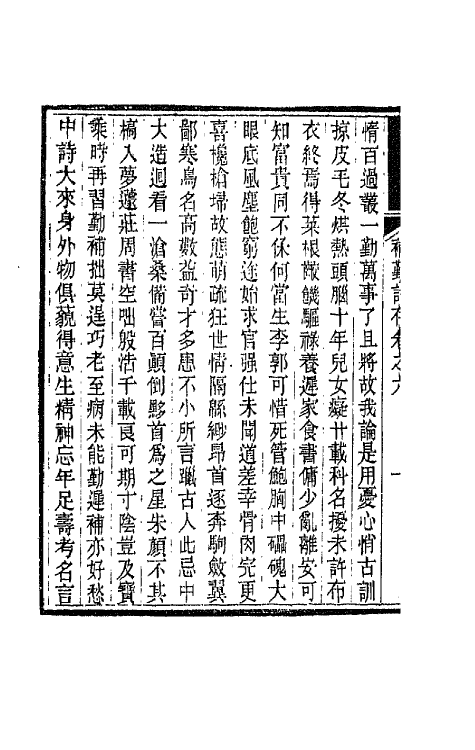 補勤詩存卷之九
一
惰百過叢一勤萬事了且將故我論是用憂心悄古訓
掠皮毛冬烘熱頭腦十年兒女癡廿載科名擾未許布
衣終焉得菜根飽饑驅祿養遲家食書傭少亂離安可
知富貴同不保何當生李郭可惜死管鮑胸中礧磈大
眼底風塵飽窮途始求官强仕未聞道差幸骨肉完更
喜欃槍埽故態萌疏狂世情隔縣緲昻首逐奔駒斂翼
鄙寒鳥名高數益奇才多患不小所言躐古人此忌中
大造迴看一滄桑備嘗百顚倒黟首爲之星朱顏不其
槁入夢蘧莊周書空咄殷浩千載良可期寸陰豈及寶
乘時再習勤補拙莫逞巧老至病未能勤遲補亦好愁
中詩大來身外物俱藐得意生精神忘年足壽考名言